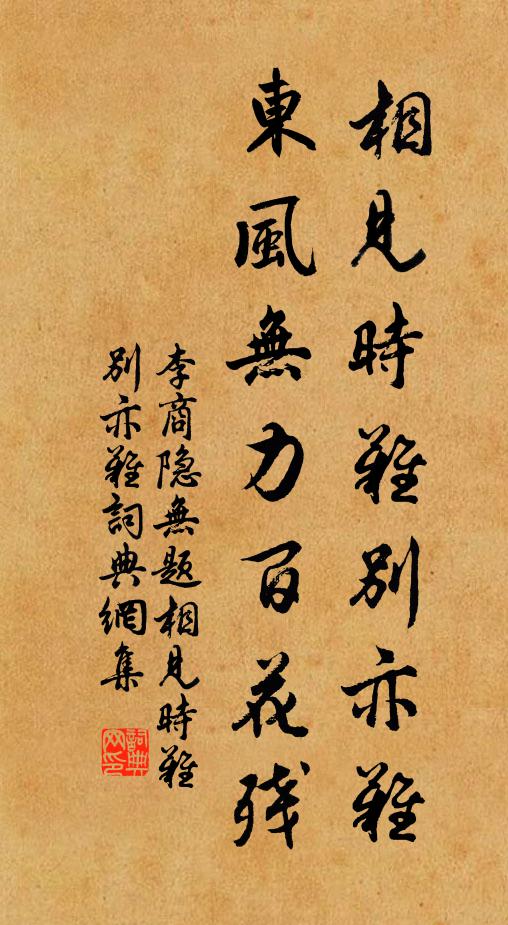 相見時難別亦難
東風無力百花残
李商隐無题相見時難
別亦難詞典網集
詞典网印